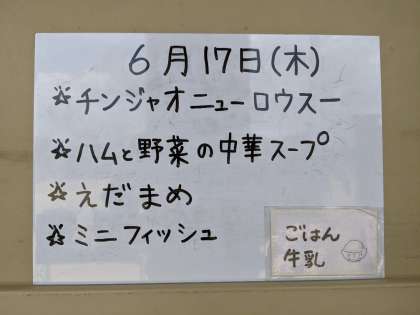 6月17日(木)
☆チンジャオニューロウスー
☆ハムと野菜の中華スープ
☆えだまめ
☆ミニフィッシュ
ごはん
牛乳